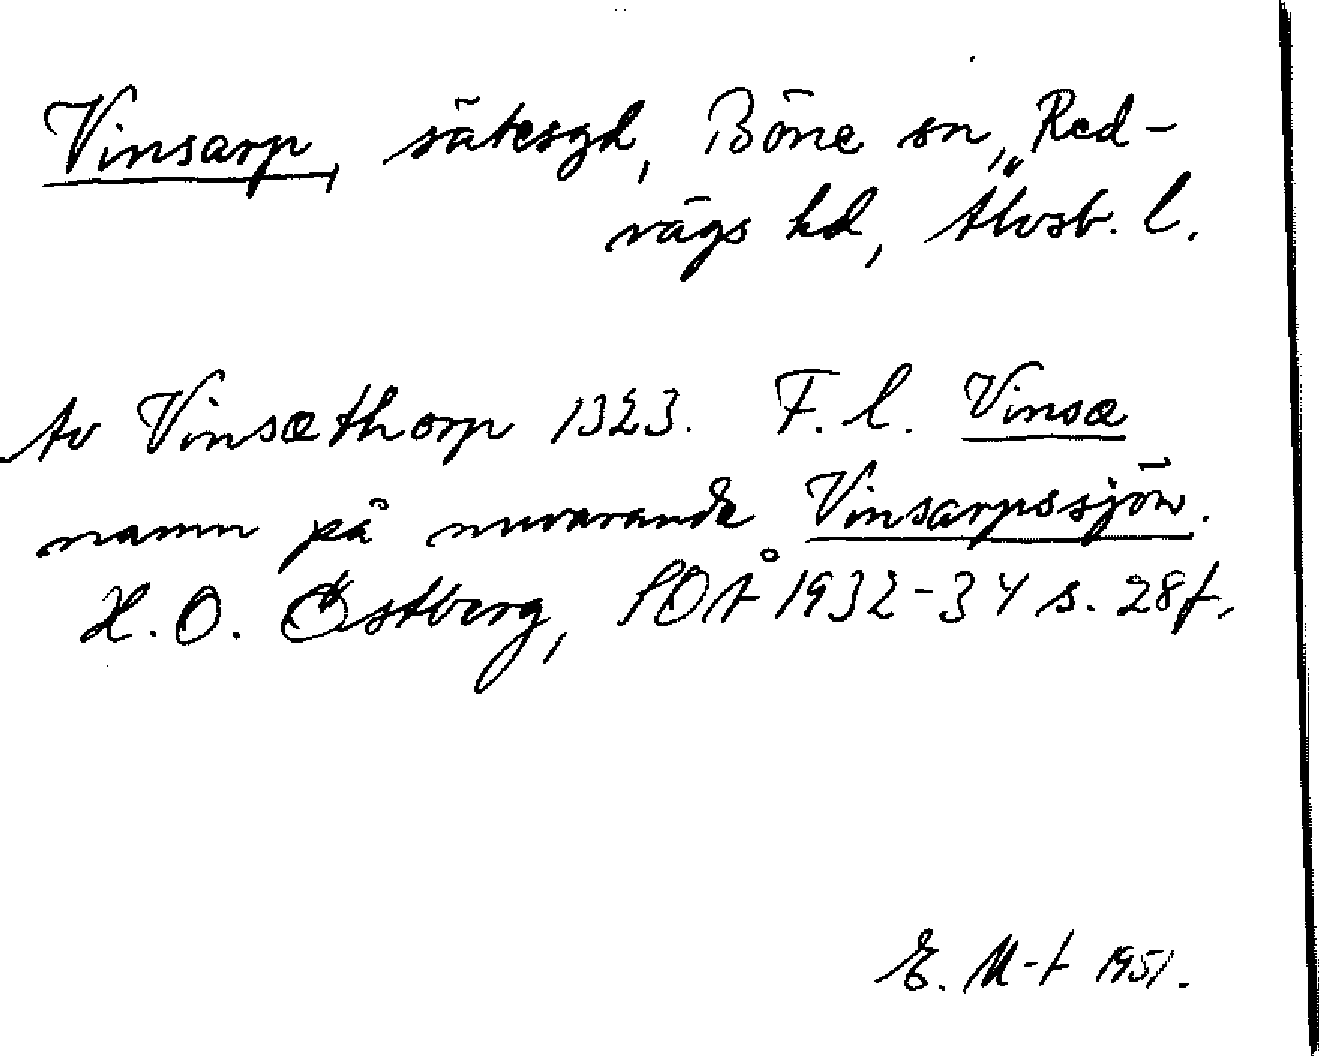 Vinsarp, sätesgd, Böne sn, Red-
vägs hd, Älvsb. l.
Av Vinsæthorp 1323. F. l. Vinsæ
namn på nuvarande Vinsarpssjön.
H. O. Östberg, SOÅ 1932-34 s. 28f.
E. M-t 1951.